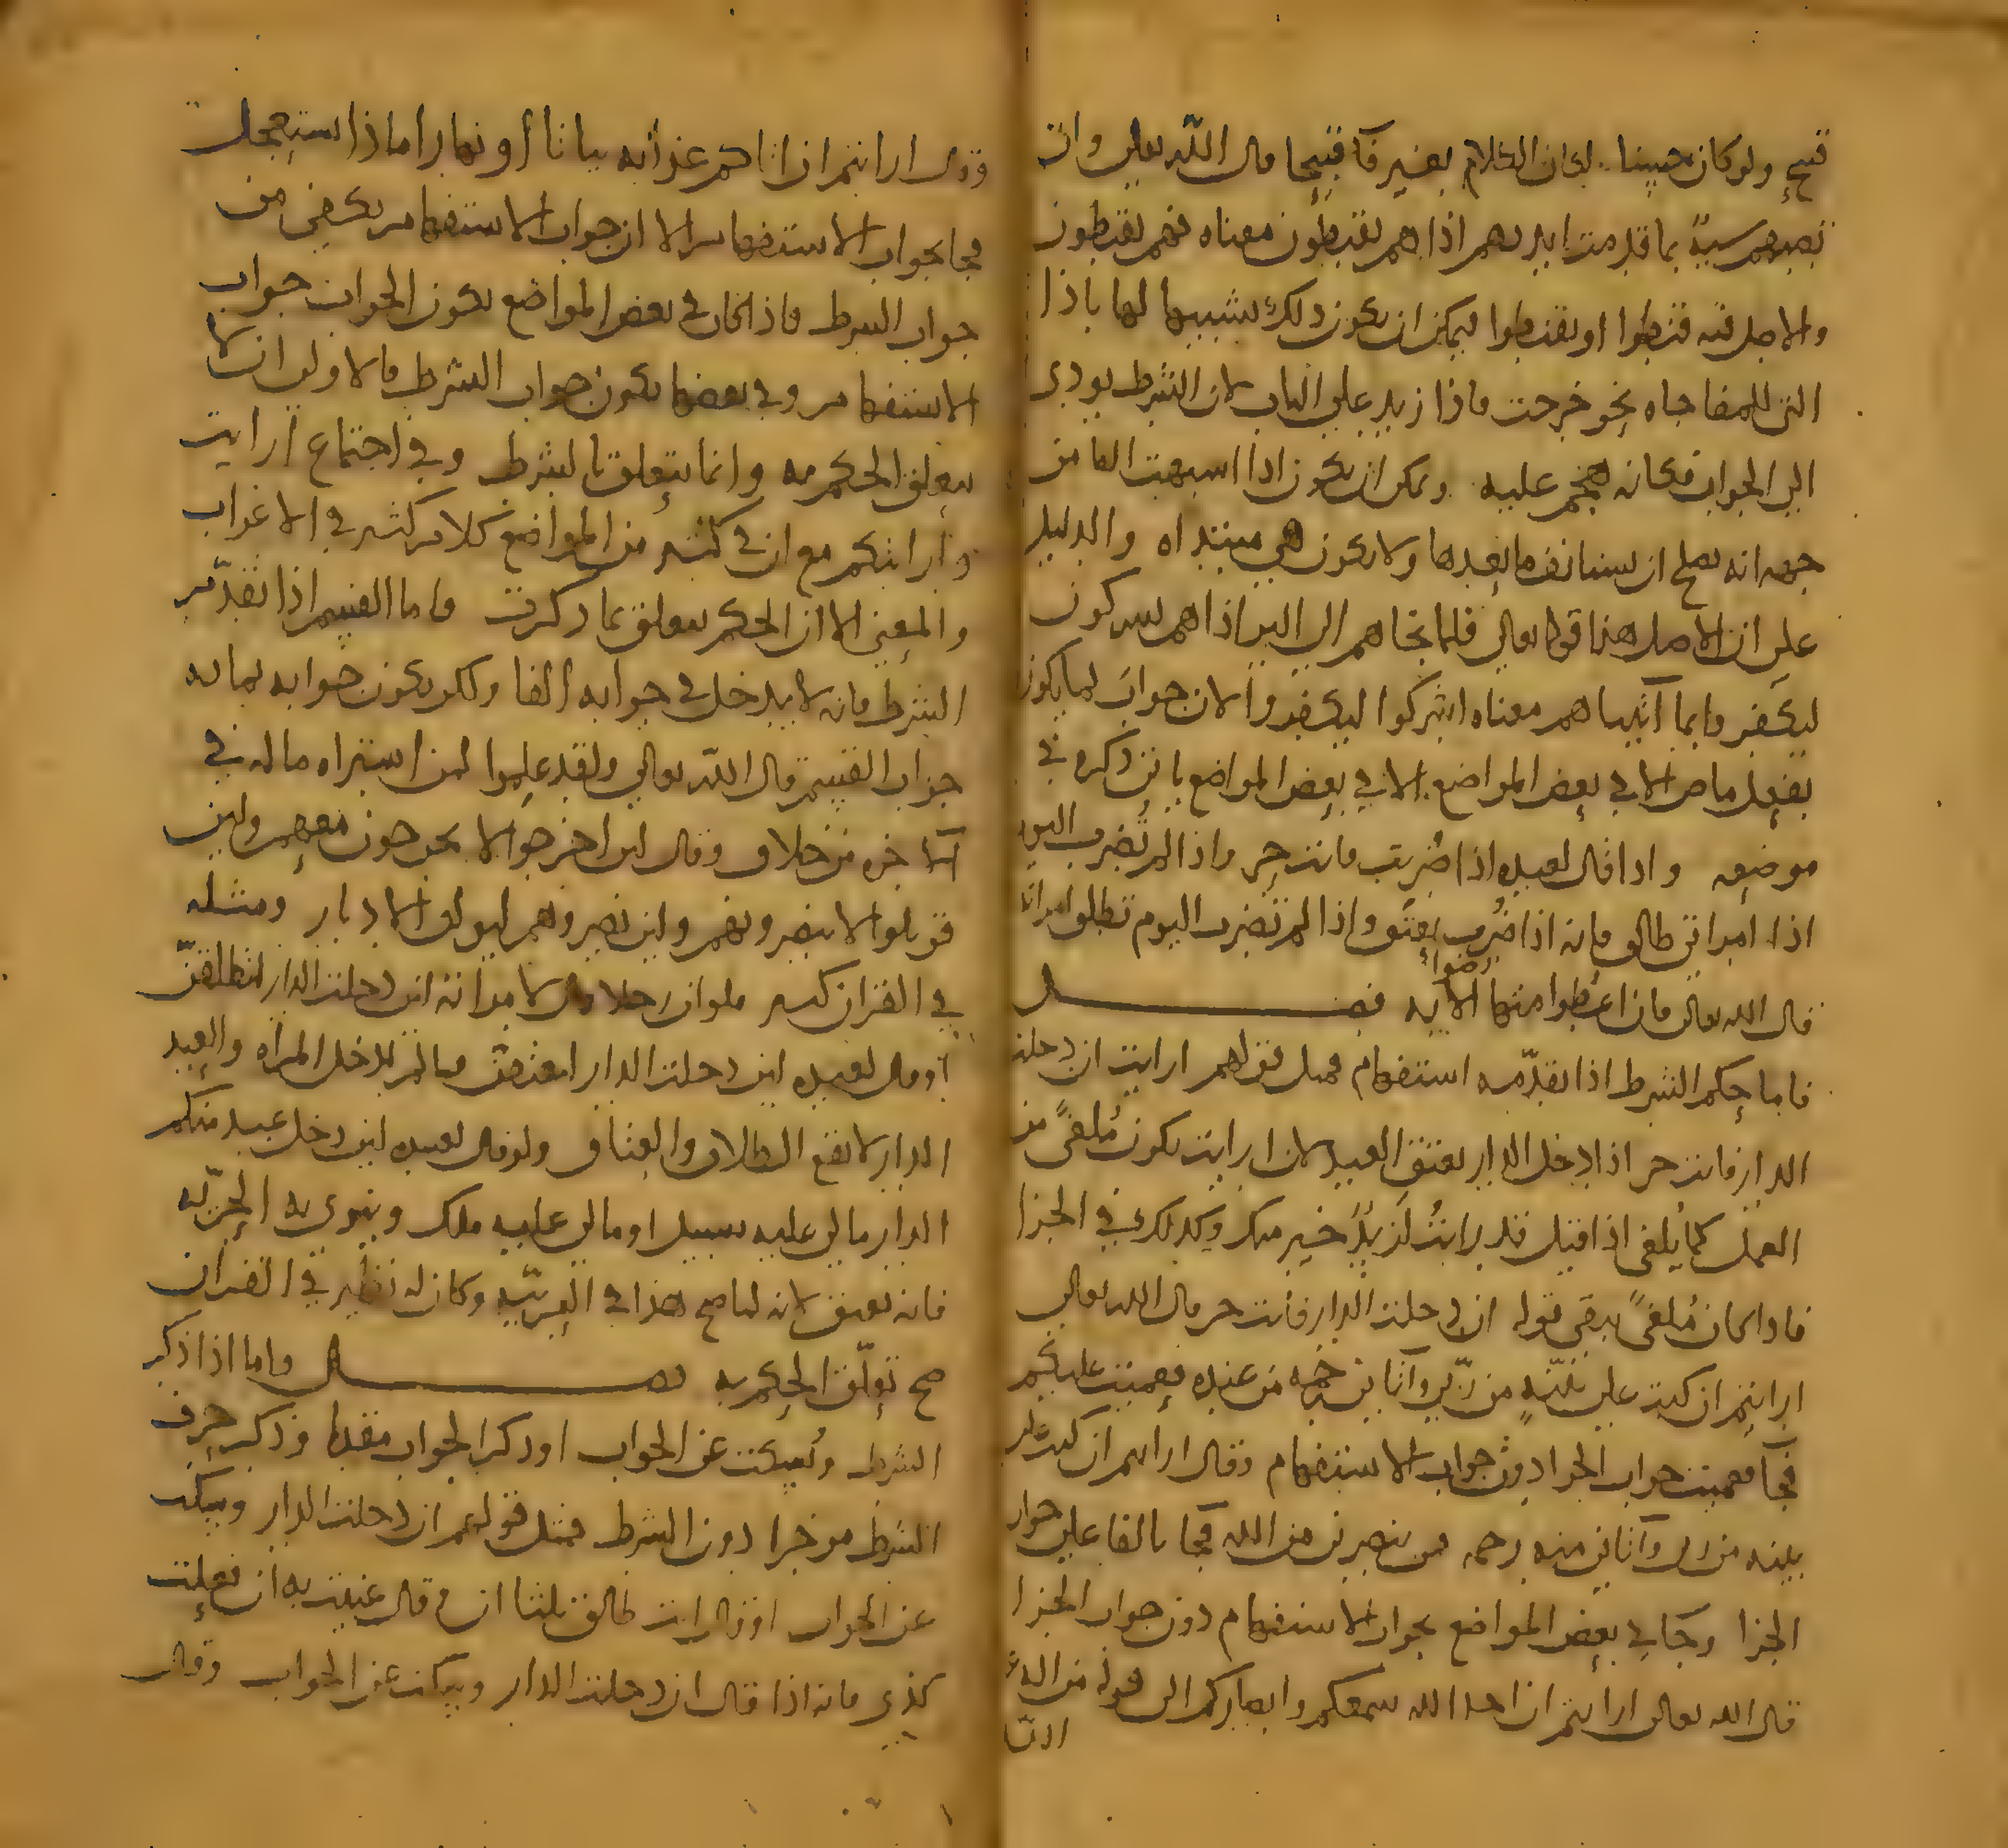 قبيح ولو كان حسنا لكان الكلام بغير فآ قبيحا قال الله تعالى وان
تصبهم سيية بما قدمت ايديهم اذا هم يقنطون معناه فهم يقنطون
والاصل فيه قنطوا او يقنطوا فيمكن ان يكون ذلك تشبيها لها باذا
التى للمفاجاه نحو خرجت فاذا زيد على الباب لان الشرط يودى
الى الجواب فكانه هجم عليه ويمكن ان يكون اذا اشبهت الفا من
جهه انه يصلح ان يستانف ما بعدها ولا يكون هى مبتداه والدليل
على ان الاصل هذا قوله تعالى فلما نجاهم الى البر اذا هم يشركون
ليكفروا بما آتيناهم معناه اشركوا ليكفروا لان جواب لما يكون
بفعل ماض الا فى بعض المواضع الا فى بعض المواضع ياتى ذكره فى
موضعه واذا قال لعبده اذا ضربت فانت حر واذا لم تضرب اليوم
اذا امراتى طالق فانه اذا ضرب يعتق واذا لم تضرب اليوم تطلق امراته
قال الله تعالى فان اعطوا منها رضوا الايه فصل
فاما حكم الشرط اذا تقدمه استفهام فمثل قولهم ارايت ان دخلت
الدار فانت حر اذا دخل الدار يعتق العبد لان ارايت يكون ملغى من
العمل كما يلغى اذا قيل قد رايت لزيد خير منك وكذلك فى الجزا
فاذا كان ملغى بقى قوله ان دخلت الدار فانت حر قال الله تعالى
ارايتم ان كنت على بينة من ربى وآتانى رحمه من عنده فعميت عليكم
فجآ فعميت جواب الجزا دون جواب الاستفهام وقال ارايتم ان كنت على
بينه من ربى وآتانى منه رحمه فمن ينصرنى من الله فجآ بالفا على جواب
الجزا وجا فى بعض المواضع بجواب الاستفهام دون جواب الجزا
قال الله تعالى ارايتم ان اخذ الله سمعكم وابصاركم الى قوله من اله
وقال ارايتم ان اتاكم عذابه بياتا أو نهارا ماذا يستعجل
فجا بجواب الاستفهام الا ان جواب الاستفهام يكفى من
جواب الشرط فاذا كان فى بعض المواضع يكون الجواب جواب
الاستفهام وفى بعضها يكون جواب الشرط فالاولى ان لا
يتعلق الحكم به وانما يتعلق بالشرط وفى اجتماع ارايت
وارايتكم مع ان فى كثير من المواضع كلام كثير فى الاعراب
والمعنى الا ان الحكم يتعلق بما ذكرت فاما القسم اذا تقدم
الشرط فانه لا يدخل فى جوابه الفا ولكن يكون جوابه بما به
جواب القسم قال الله تعالى ولقد علموا لمن اشتراه ما له فى
الآخره من خلاق وقال لين اخرجوا لا يخرجون معهم ولين
قوتلوا لا ينصرونهم ولين نصروهم ليولن الادبار ومثله
فى القران كثير فلو ان رجلا قال لامراته لين دخلت الدار لتطلقن
او قال لعبده لين دخلت الدار لتعتقن فما لم تدخل المراه والعبد
الدار لا يقع الطلاق والعتاق ولو قال لعبيده لين دخل عبد منكم
الدار مالى عليه سبيل او مالى عليه ملك وينوى به الحريه
فانه يعتق لانه لما صح هذا فى العربيه وكان له نظير فى القران
صح تعلق الحكم به فصل واما اذا ذكر
الشرط وسكت عن الجواب او ذكر الجواب مقدما وذكر حرف
الشرط موخرا دون الشرط فمثل قولهم ان دخلت الدار وسكت
عن الجواب او قال انت طالق ثلثا ان ثم قال عنيت به ان فعلت
كذى فانه اذا قال ان دخلت الدار وسكت عن الجواب وقال